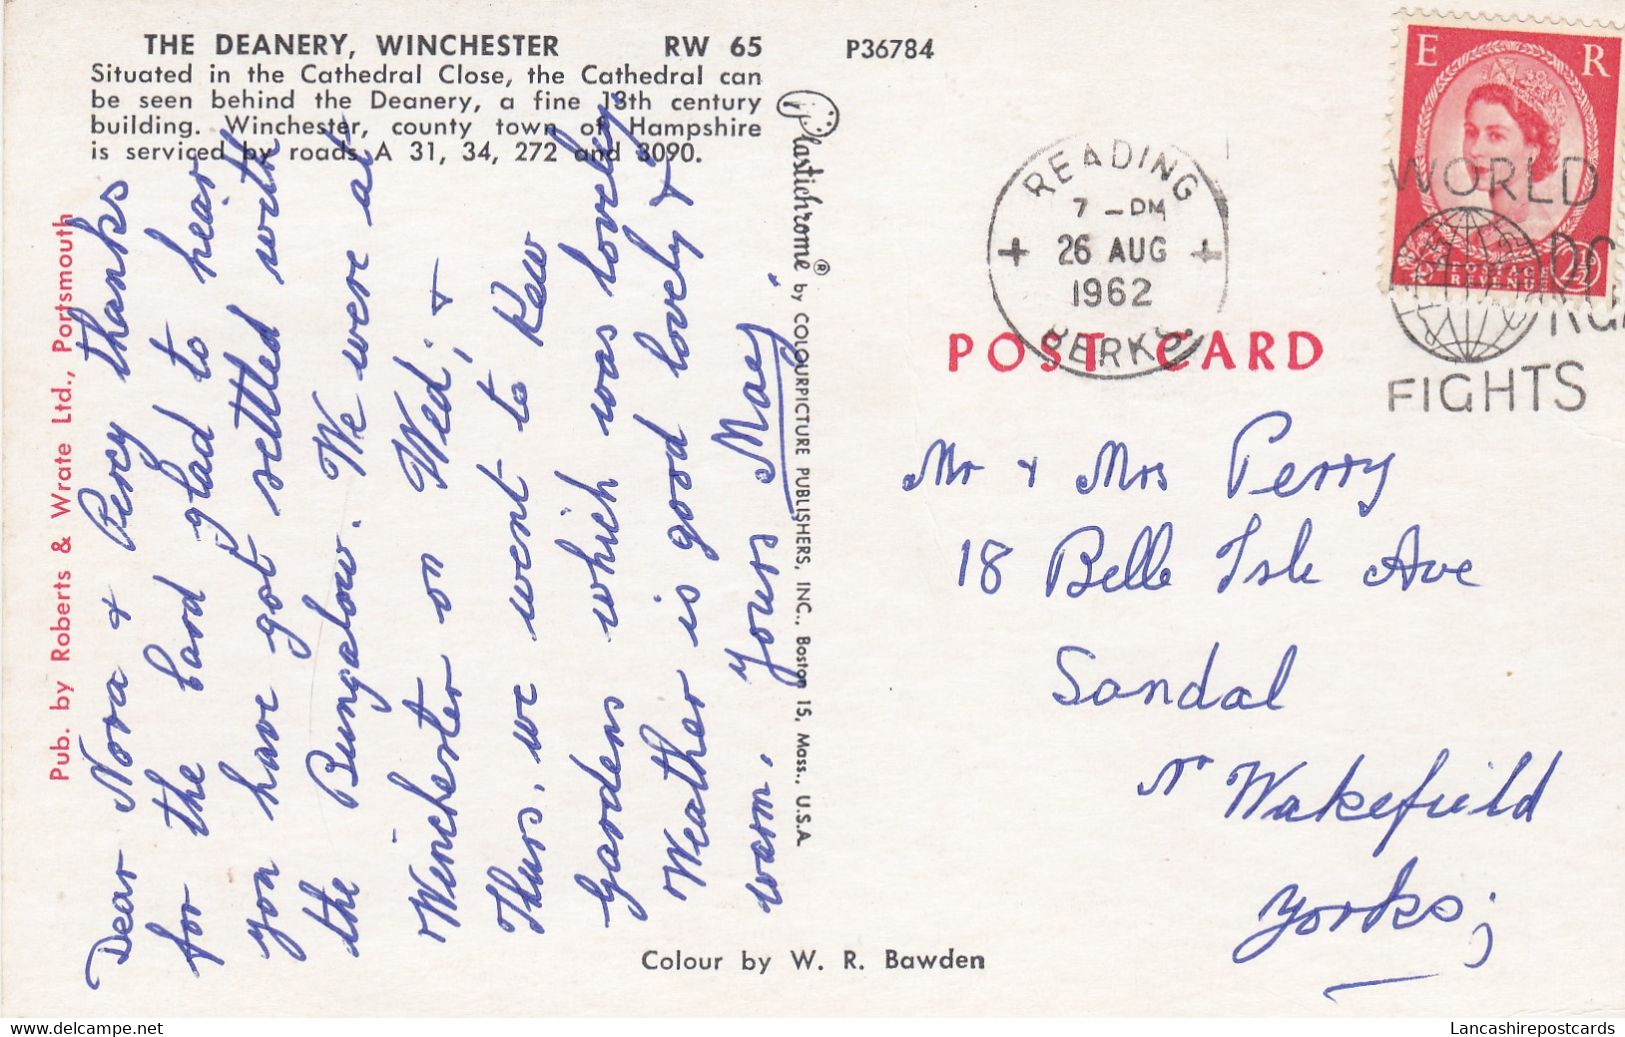 THE DEANERY, WINCHESTER RW 65 P36784
Situated in the Cathedral Close, the Cathedral can
be seen behind the Deanery, a fine 18th century
building. Winchester, county town of Hampshire
is serviced by roads A 31, 34, 272 and 3090.
Pub. by Roberts & Wrate Ltd., Portsmouth
Dear Nora & Percy thanks
for the card glad to hear
you have got settled with
the Bungalow. We were at
Winchester on Wed; &
Thurs, we went to Kew
Gardens which was lovely
Weather is good lovely &
warm. Yours May.
Plastichrome ® by COLOURPICTURE PUBLISHERS, INC., Boston 15, Mass., U.S.A.
Colour by W. R. Bawden
READING
7 - PM
26 AUG
1962
BERKS.
E R
POSTAGE
REVENUE
WORLD
FIGHTS
POST CARD
Mr & Mrs Perry
18 Belle Isle Ave
Sandal
Nr Wakefield
Yorks;
Lancashirepostcards